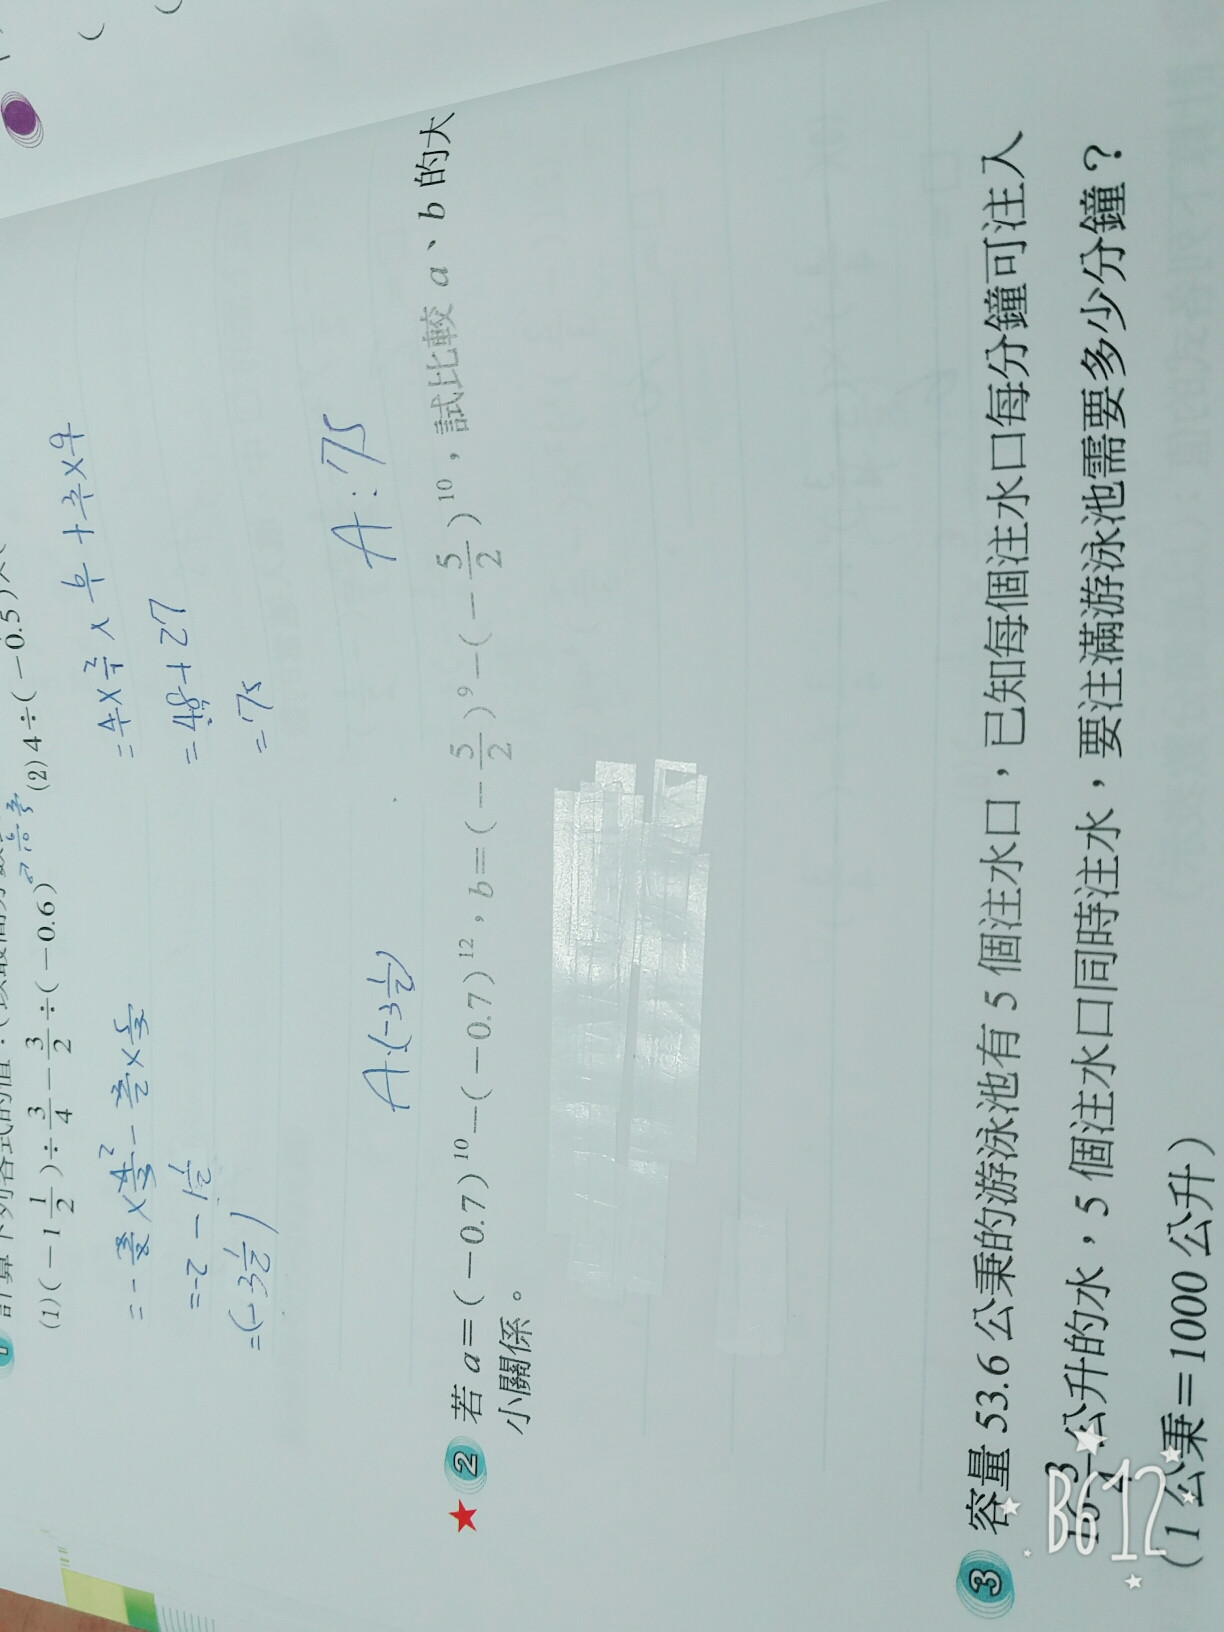 計算下列各式的值：
(1)(−1 1/2)÷3/4−3/2÷(−0.6)
(2) 4÷(−0.5)×(
=−3/2×4/3−3/2×5/3
=−2−1 1/2
=(−3 1/2)
A:(−3 1/2)
=48+27
=75
A:75
2 若 a=(−0.7)¹⁰−(−0.7)¹²，b=(−5/2)⁹−(−5/2)¹⁰，試比較 a、b 的大
小關係。
3 容量 53.6 公秉的游泳池有 5 個注水口，已知每個注水口每分鐘可注入
公升的水，5 個注水口同時注水，要注滿游泳池需要多少分鐘？
(1 公秉=1000 公升)
B612